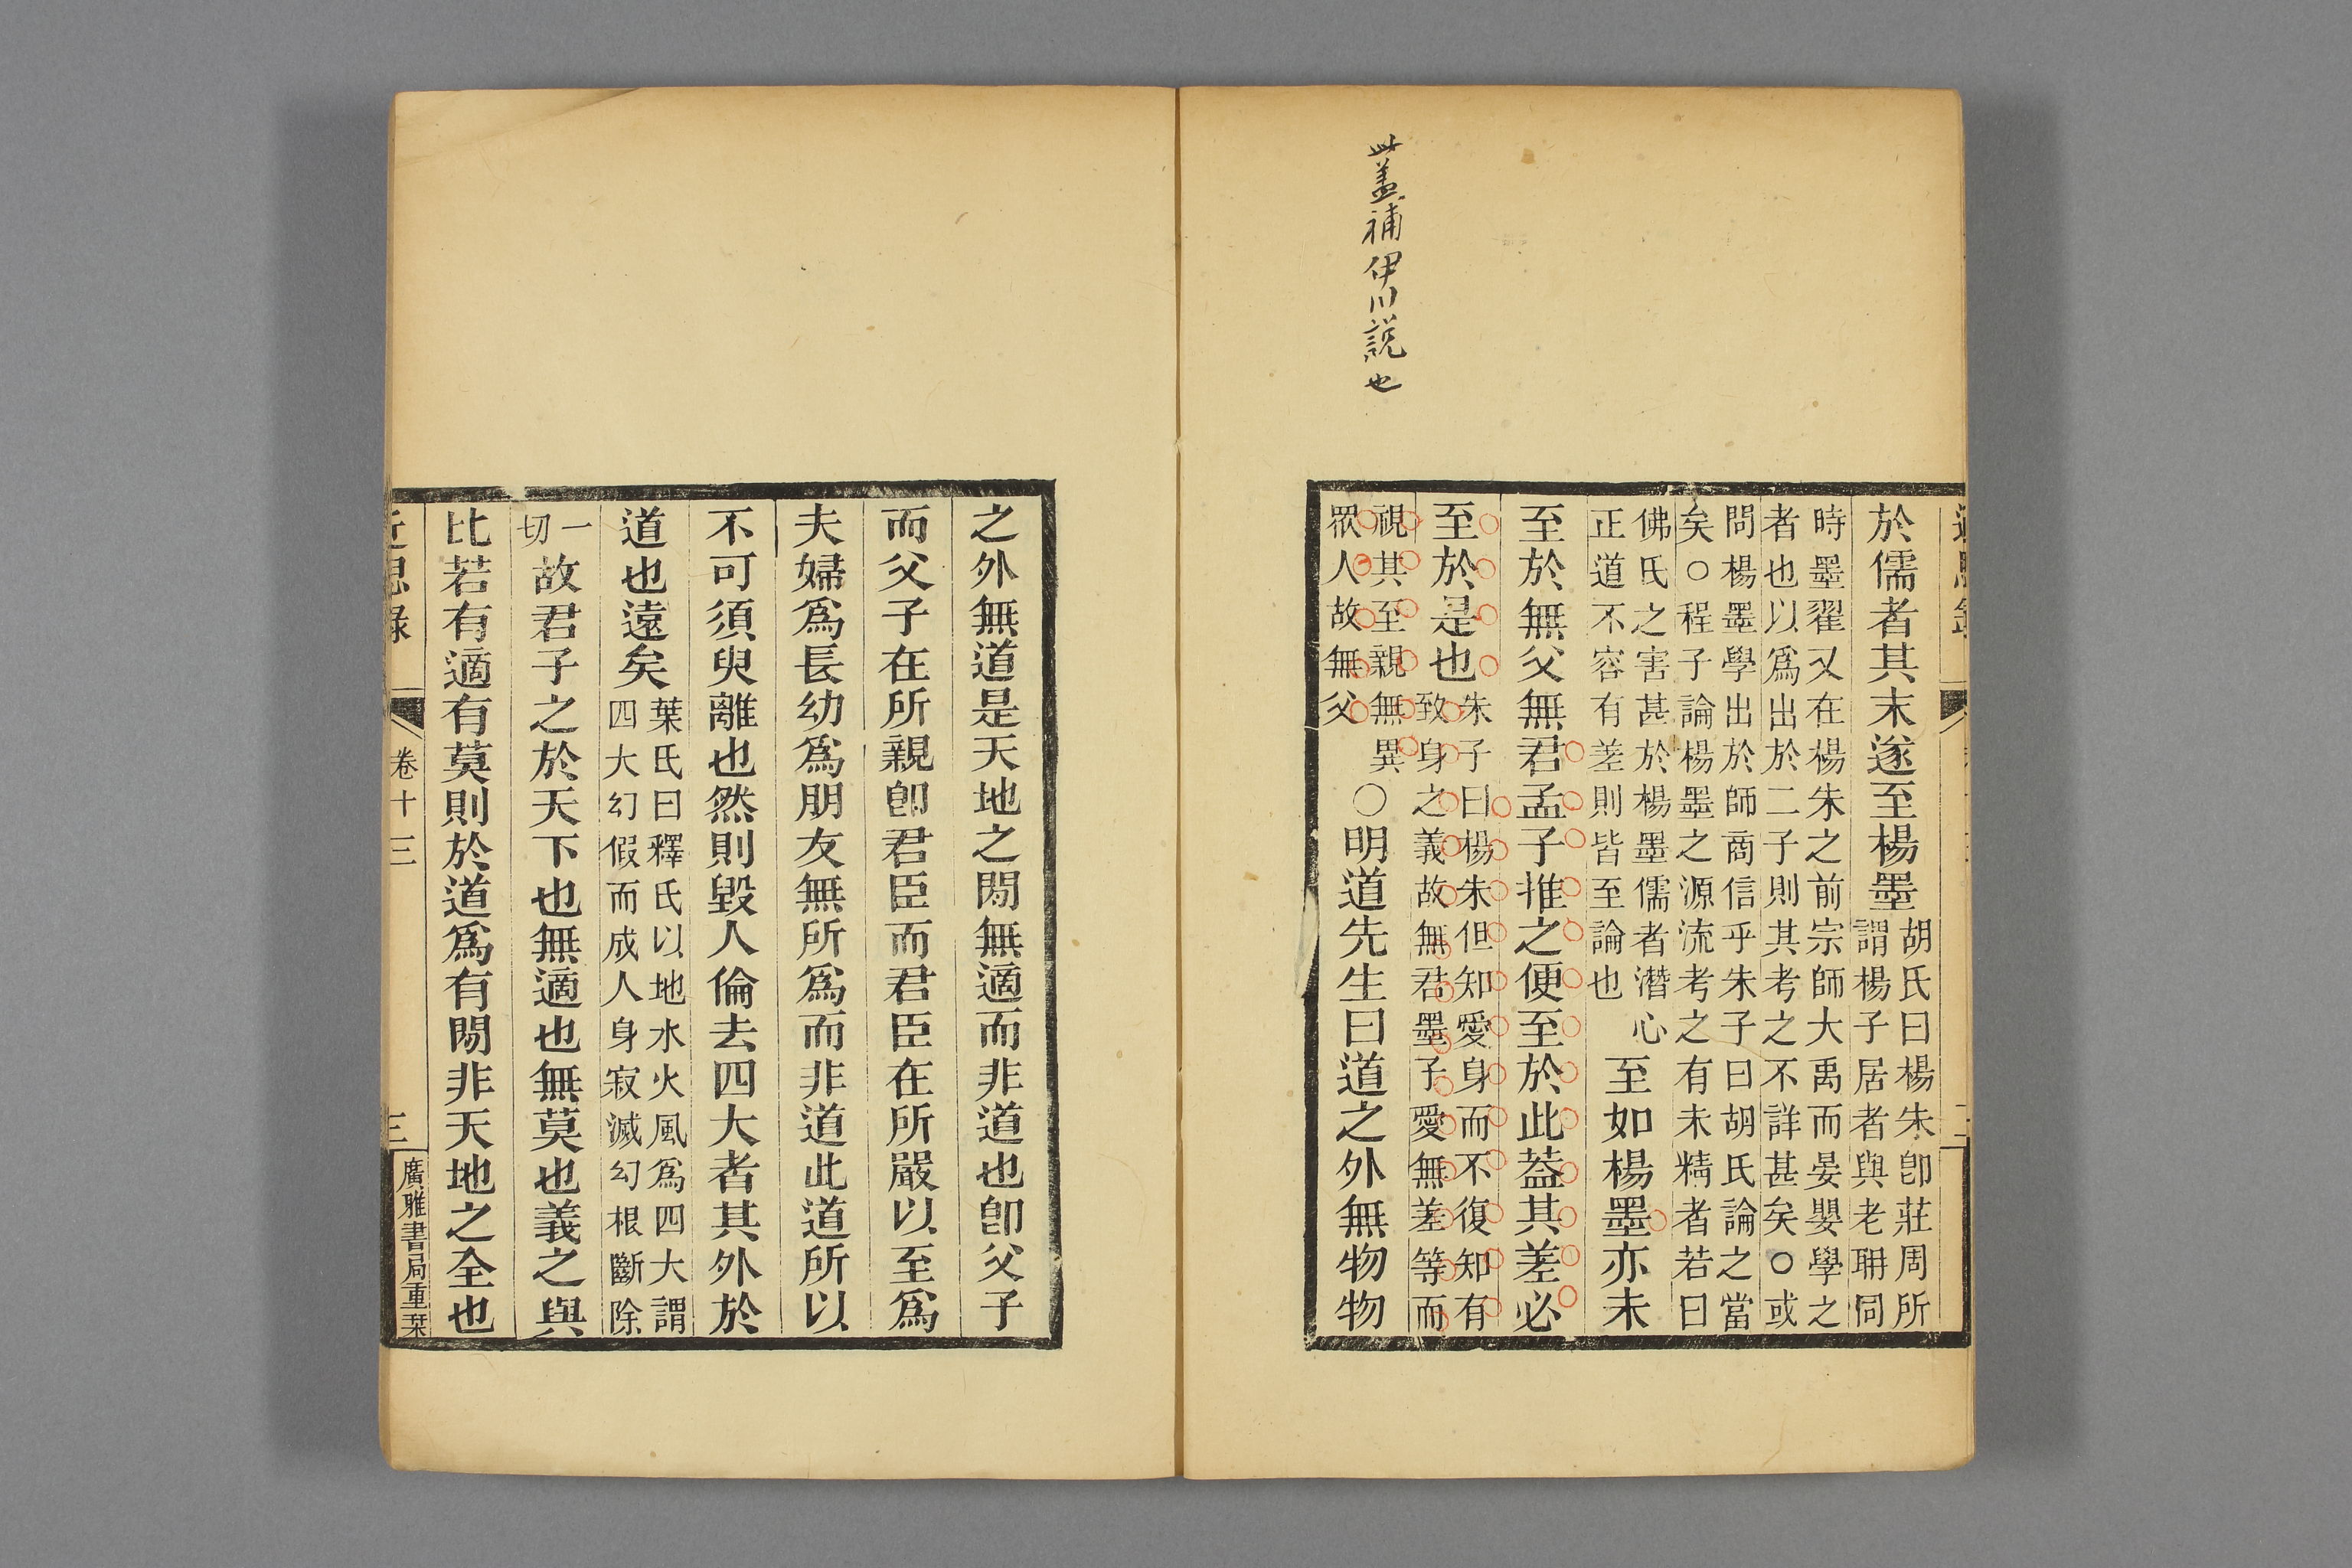 此蓋補伊川說也
於儒者其末遂至楊墨
胡氏曰楊朱卽莊周所
謂楊子居者與老聃同
時墨翟又在楊朱之前宗師大禹而晏嬰學之
者也以爲出於二子則其考之不詳甚矣○或
問楊墨學出於師商信乎朱子曰胡氏論之當
矣○程子論楊墨之源流考之有未精者若曰
佛氏之害甚於楊墨儒者潛心
正道不容有差則皆至論也
至如楊墨亦未
至於無父無君孟子推之便至於此蓋其差必
至於是也
朱子曰楊朱但知愛身而不復知有
致身之義故無君墨子愛無差等而
視其至親無異
眾人故無父
○明道先生曰道之外無物物
之外無道是天地之閒無適而非道也卽父子
而父子在所親卽君臣而君臣在所嚴以至爲
夫婦爲長幼爲朋友無所爲而非道此道所以
不可須臾離也然則毀人倫去四大者其外於
道也遠矣
葉氏曰釋氏以地水火風爲四大謂
四大幻假而成人身寂滅幻根斷除
一
切
故君子之於天下也無適也無莫也義之與
比若有適有莫則於道爲有閒非天地之全也
近思錄
卷十三
三
廣雅書局重栞